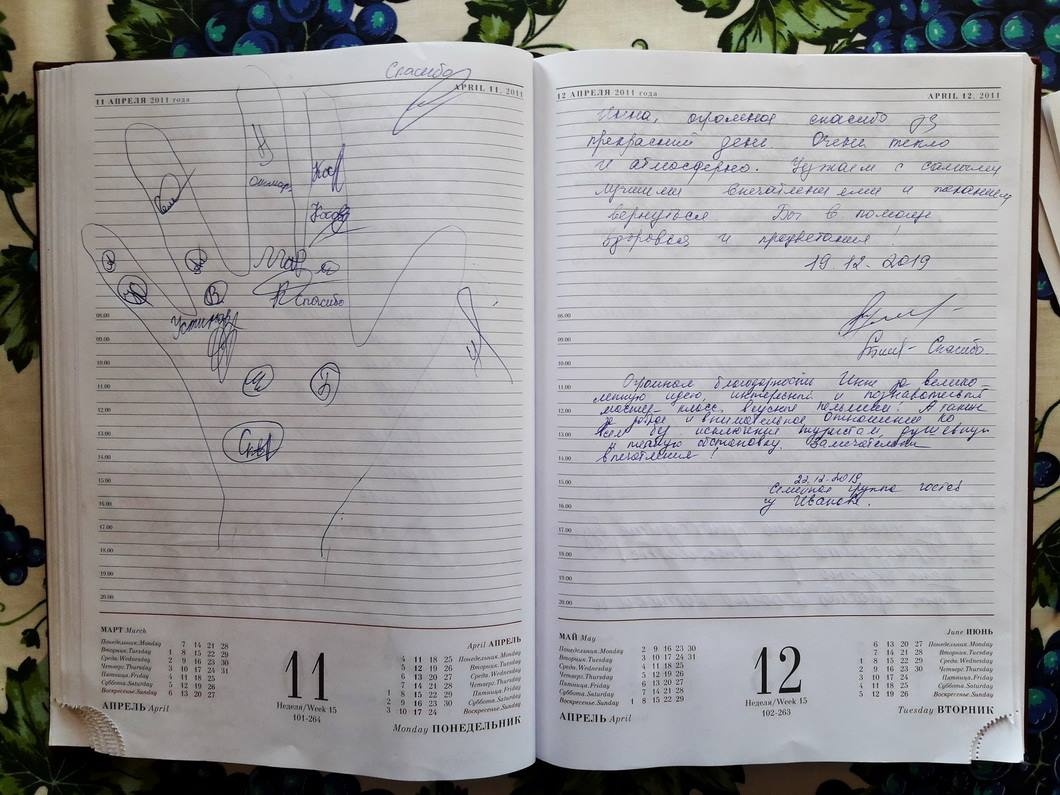 Спасибо
11 АПРЕЛЯ 2011 года
APRIL 11, 2011
Спасибо
08.00
09.00
10.00
11.00
12.00
13.00
14.00
15.00
16.00
17.00
18.00
19.00
20.00
МАРТ March
Понедельник.Monday 7 14 21 28
Вторник.Tuesday 1 8 15 22 29
Среда.Wednesday 2 9 16 23 30
Четверг.Thursday 3 10 17 24 31
Пятница.Friday 4 11 18 25
Суббота.Saturday 5 12 19 26
Воскресенье.Sunday 6 13 20 27
АПРЕЛЬ April
11
Неделя/Week 15
101-264
April АПРЕЛЬ
4 11 18 25 Понедельник.Monday
5 12 19 26 Вторник.Tuesday
6 13 20 27 Среда.Wednesday
7 14 21 28 Четверг.Thursday
1 8 15 22 29 Пятница.Friday
2 9 16 23 30 Суббота.Saturday
3 10 17 24 Воскресенье.Sunday
Monday ПОНЕДЕЛЬНИК
12 АПРЕЛЯ 2011 года
APRIL 12, 2011
Инна, огромное спасибо за
прекрасный день. Очень тепло
и атмосферно. Уезжаем с самыми
лучшими впечатлениями и желанием
вернуться. Бог в помощь
здоровья и процветания!
19.12.2019
Спасибо
08.00
09.00
10.00
11.00
12.00
13.00
14.00
15.00
16.00
17.00
18.00
19.00
20.00
Огромная благодарность Инне за велико-
лепную идею, интересный и познавательный
мастер-класс, вкусные пельмени! А также
за доброе и внимательное отношение ко
всем без исключения туристам душевную
и теплую обстановку. Замечательные
впечатления!
22.12.2019
Семейная группа гостей
из Иваново.
МАЙ May
Понедельник.Monday 2 9 16 23 30
Вторник.Tuesday 3 10 17 24 31
Среда.Wednesday 4 11 18 25
Четверг.Thursday 5 12 19 26
Пятница.Friday 6 13 20 27
Суббота.Saturday 7 14 21 28
Воскресенье.Sunday 1 8 15 22 29
АПРЕЛЬ April
12
Неделя/Week 15
102-263
June ИЮНЬ
6 13 20 27 Понедельник.Monday
7 14 21 28 Вторник.Tuesday
1 8 15 22 29 Среда.Wednesday
2 9 16 23 30 Четверг.Thursday
3 10 17 24 Пятница.Friday
4 11 18 25 Суббота.Saturday
5 12 19 26 Воскресенье.Sunday
Tuesday ВТОРНИК